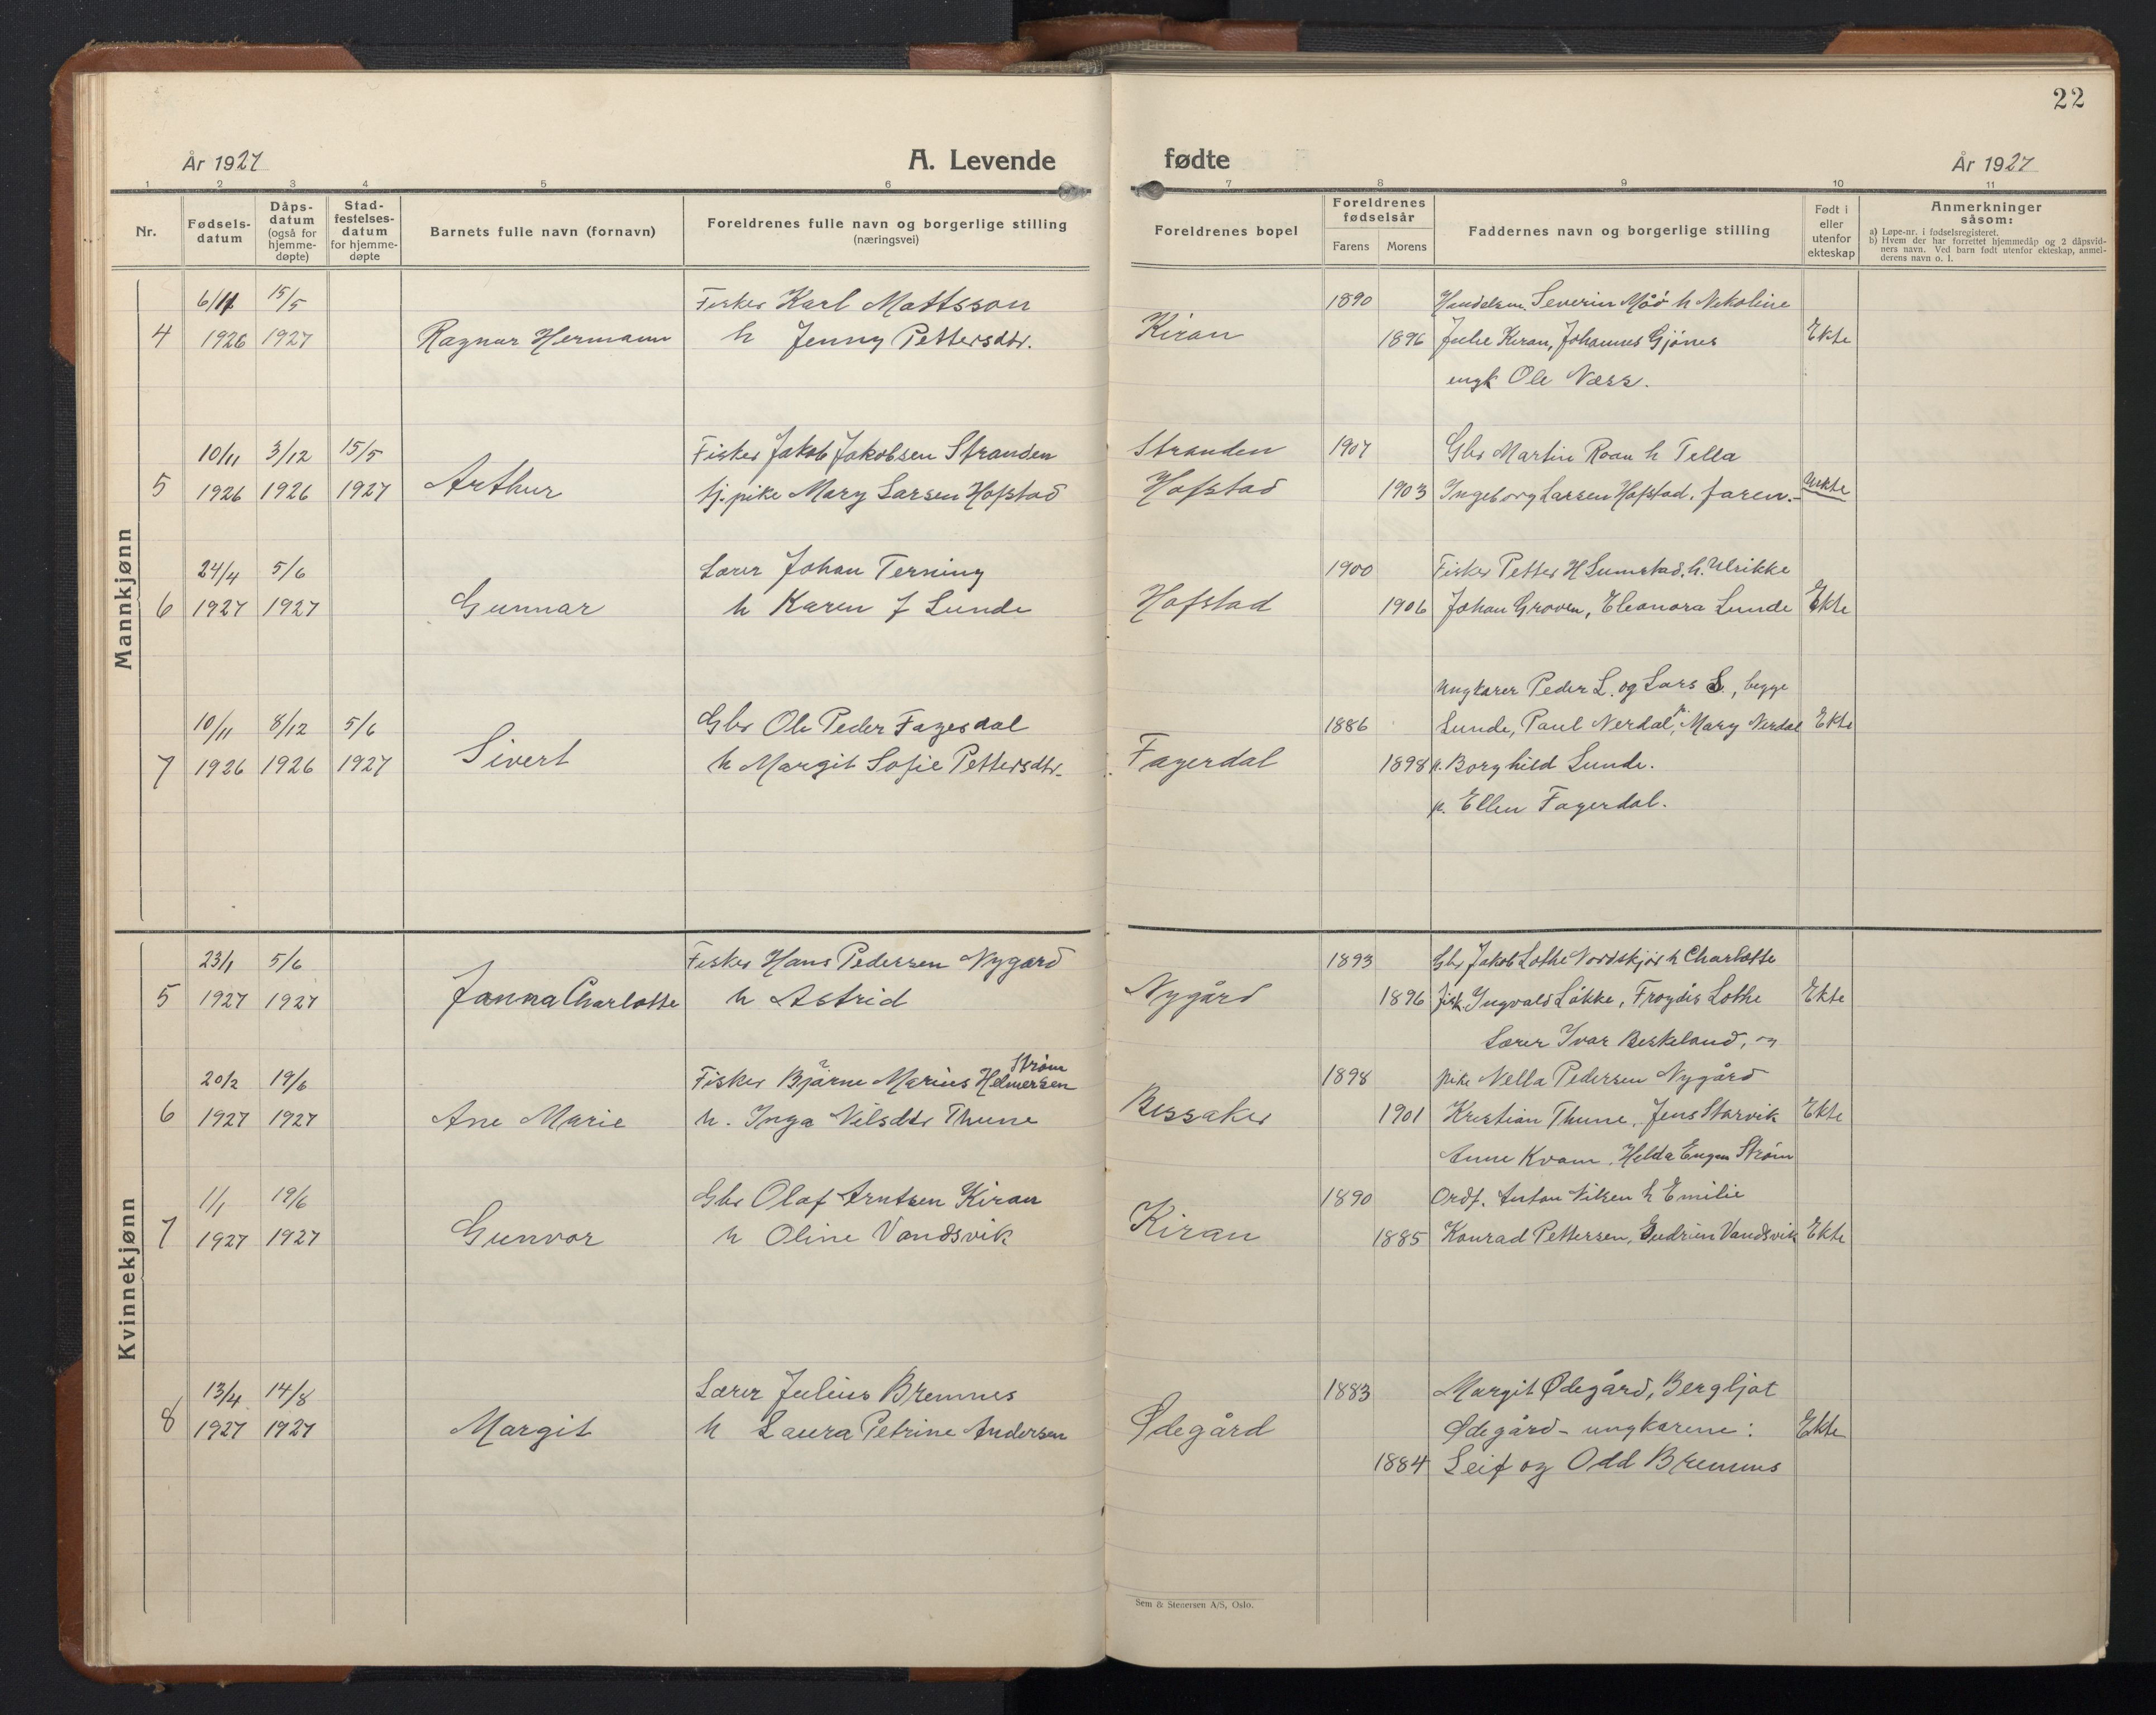 22
År 1927
A. Levende
fødte
År 1927
1 2 3 4 5 6 7 8 9 10 11
Nr.
Fødsels-
datum
Dåps-
datum
(også for
hjemme-
døpte)
Stad-
festelses-
datum
for hjemme-
døpte
Barnets fulle navn (fornavn)
Foreldrenes fulle navn og borgerlige stilling
(næringsvei)
Foreldrenes bopel
Foreldrenes
fødselsår
Farens Morens
Faddernes navn og borgerlige stilling
Født i
eller
utenfor
ekteskap
Anmerkninger
såsom:
a) Løpe-nr. i fødselsregisteret.
b) Hvem der har forrettet hjemmedåp og 2 dåpsvid-
ners navn. Ved barn født utenfor ekteskap, anmel-
derens navn o. l.
Mannkjønn
6/11 15/5 Fisker Karl Mattsson 1890 Severin Måø h Nikoline
4 1926 1927 Ragnar Hermann h Jenny Pettersdtr. Kiran 1896 Julie Kiran, Johannes Gjønes Ekte
ungk Ole Næss.
10/11 3/12 15/5 Fisker Jakob Jakobsen Stranden Stranden 1907 Gbr Martin Roan h Tella
5 1926 1926 1927 Arthur tj. pike Mary Larsen Hofstad Hofstad 1903 Ingeborg Larsen Hofstad, faren. Uekte
24/4 5/6 Lærer Johan Terning 1900 Fisker Petter H Sumstad, h. Ulrikke
6 1927 1927 Gunnar h Karen J Lunde Hofstad 1906 Johan Groven, Eleonora Lunde Ekte
Ungkarer Peder L. og Lars S., begge
10/11 8/12 5/6 Gbr Ole Peder Fagerdal 1886 Lunde, Paul Nerdal, p. Mary Nerdal Ekte
7 1926 1926 1927 Sivert h Margit Sofie Pettersdtr. Fagerdal 1898 p. Borghild Lunde.
p. Ellen Fagerdal.
Kvinnekjønn
23/1 5/6 Fisker Hans Pedersen Nygård 1893 Gbr Jakob Lothe Nordskjør h Charlotte
5 1927 1927 Janna Charlotte h Astrid Nygård 1896 fisk. Ingvald Løkke, Frøydis Lothe Ekte
Lærer Ivar Beskeland, og
Strøm
20/2 19/6 Fisker Bjarne Marius Helmersen 1898 pike Nella Pedersen Nygård
6 1927 1927 Ane Marie h. Inga Nilsdtr Thune Bessaker 1901 Kristian Thune, Jens Storvik Ekte
Anne Kvam, Helda Eugen Strøm
1/1 19/6 Gbr Olaf Arntsen Kiran 1890 Ordf. Anton Nilsen h Emilie
7 1927 1927 Gunvor h Oline Vandsvik Kiran 1885 Konrad Pettersen, Gudrun Vandsvik Ekte
13/4 14/8 Lærer Julius Bremnes 1883 Margit Ødegård, Bergljot
8 1927 1927 Margit h Laura Petrine Andersen Ødegård Ødegård - ungkarene: Ekte
1884 Leif og Odd Bremnes
Sem & Stenersen A/S, Oslo.